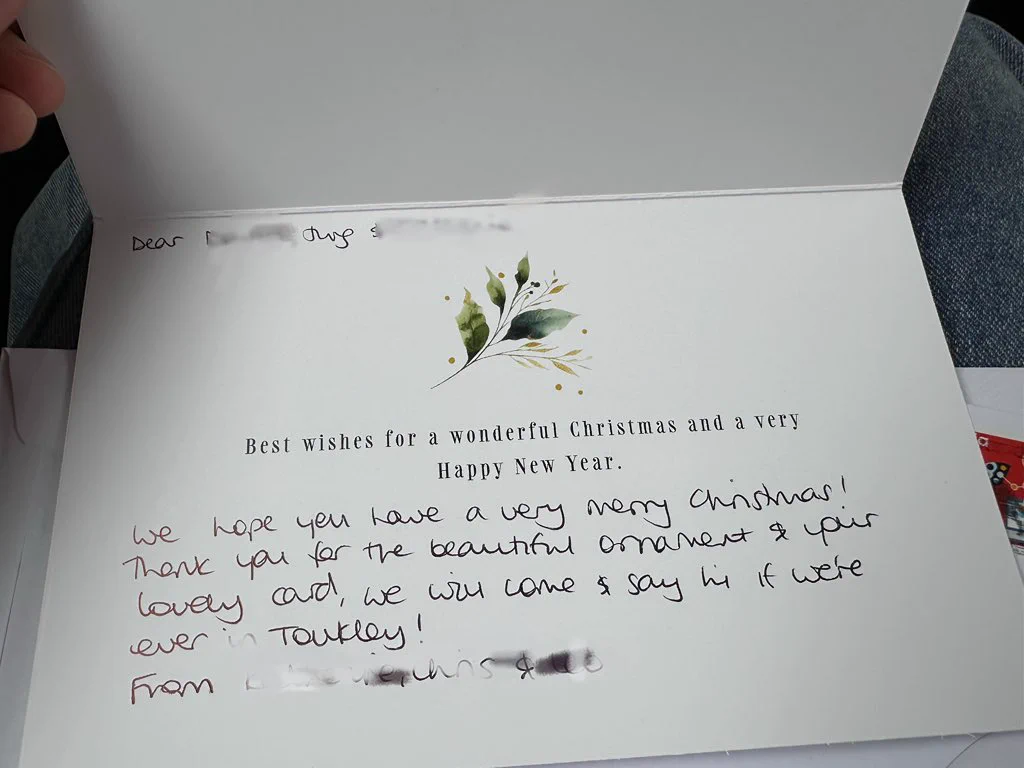 Dear
Best wishes for a wonderful Christmas and a very
Happy New Year.
We hope you have a very merry Christmas!
Thank you for the beautiful ornament & your
lovely card, we will come & say hi if we're
ever in Toukley!
From &